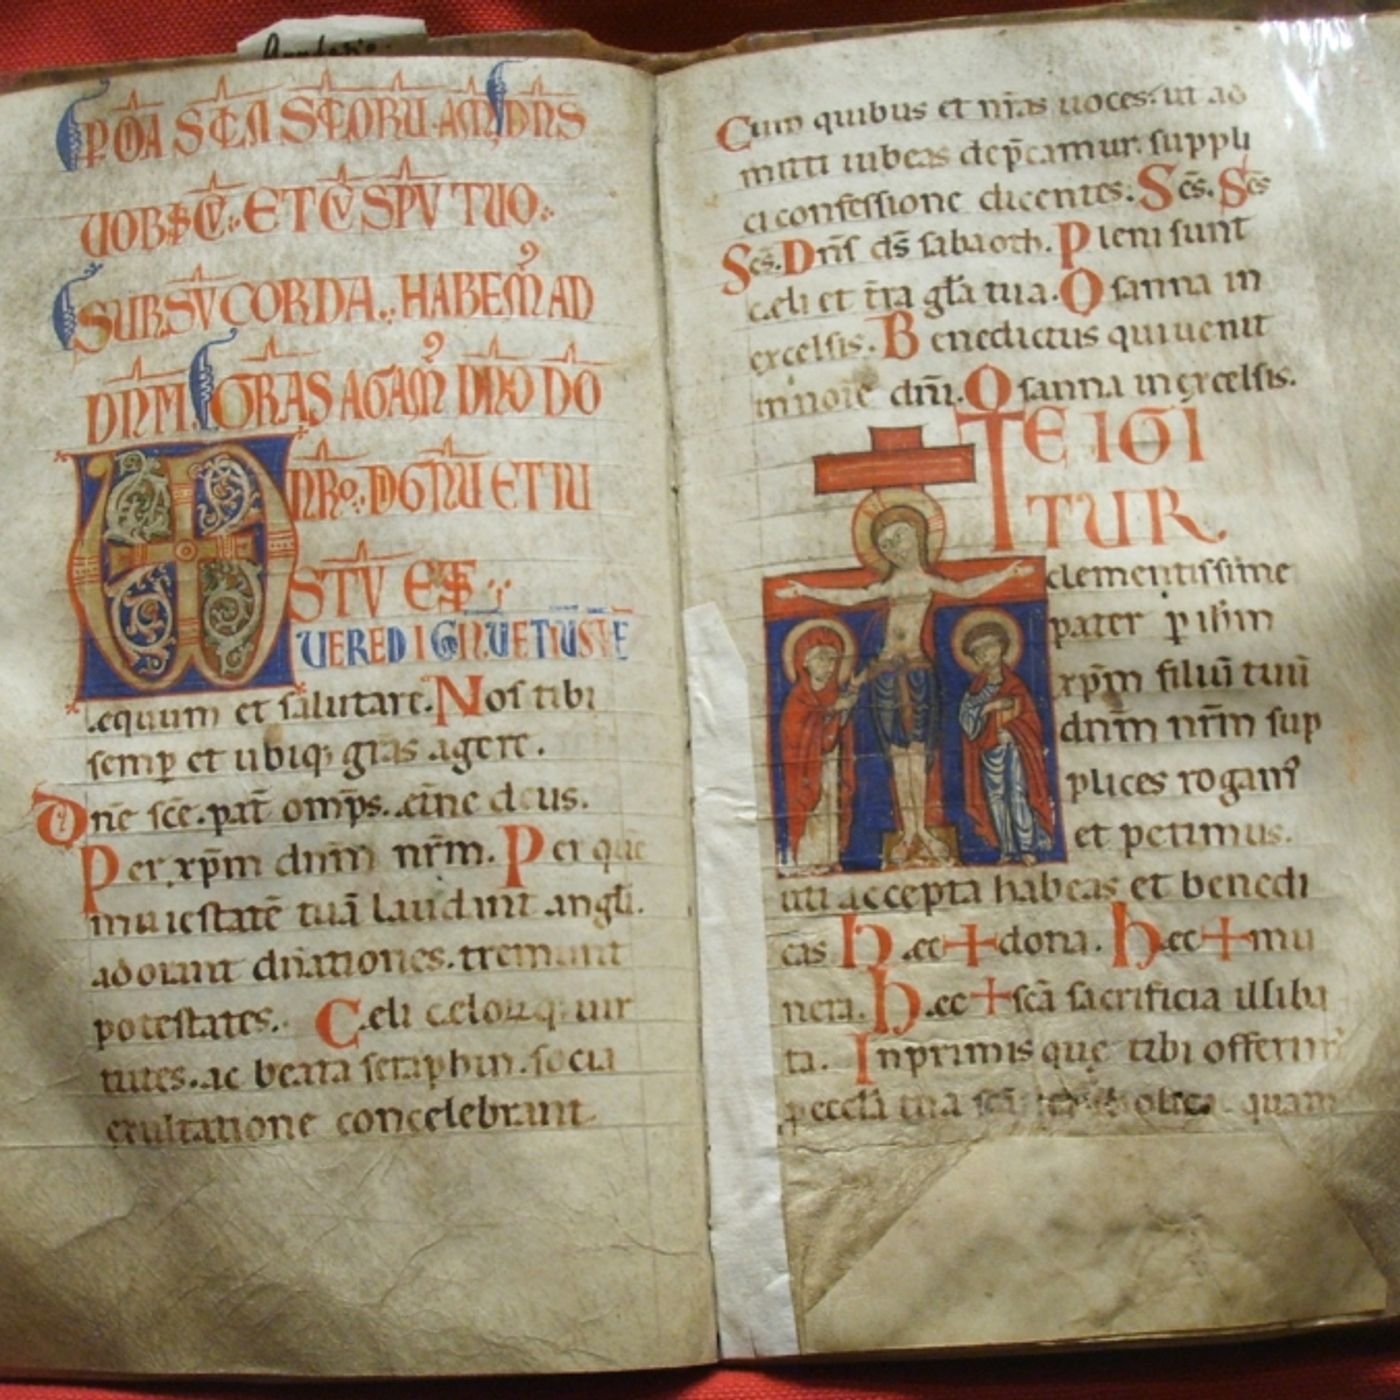 P OM̅A SC̅LA SC̅LORU. AM̅. DN̅S
UOBISCV̅. ET CV̅ SPV̅ TUO.
SURSV̅ CORDA. HABEM᾿ AD
DN̅M. GR̅AS AGAM᾿ DN̅O DO̅
NR̅O. DIGNU̅ ET IU
STV̅ EST.
UERE DIGNU̅ ET IUSTU̅ E̅
equum et salutare. Nos tibi
semp̲ et ubiq; gr̅as agere.
Dn̅e sc̅e. pat̅ omp̅s. et̅ne deus.
Per xp̅m dnm̅ nr̅m. Per que̅
maiestate̅ tua̅ laudant angl̅i.
adorant dn̅ationes. tremunt
potestates. Celi celorq; uir
tutes. ac beata seraphin. socia
exultatione concelebrant.
Cum quibus et nr̅as uoces. ut ad
mitti iubeas dep̅camur. suppli
ci confessione dicentes. Sc̅s. Sc̅s
Sc̅s. Dn̅s ds̅ sabaoth. Pleni sunt
celi et t̅ra gl̅a tua. Osanna in
excelsis. Benedictus qui uenit
in noi̅e dn̅i. Osanna in excelsis.
TE IGI
TUR
clementissime
pater p̲ ih̅m
xp̅m filiu̅ tuu̅
dnm̅ nr̅m sup
plices rogam᾿
et petimus.
uti accepta habeas et benedi
cas hec + dona. hec + mu
nera. hec + sc̅a sacrificia illiba
ta. Inprimis que tibi offerim᾿
p̲ eccl̅a tua sc̅a catholica quam